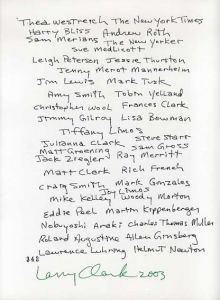 Thea Westreich The New York Times
Harry Bliss Andrew Roth
Sam Merians The New Yorker
Sue Medlicott
Leigh Peterson Jessie Thurston
Jenny Merot Mannerheim
Jim Lewis Mark Tusk
Amy Smith Tobin Yelland
Christopher Wool Frances Clark
Jimmy Gilroy Lisa Bowman
Tiffany Limos
Julianna Clark Steve Starr
Matt Groening Sam Gross
Jack Ziegler Ray Merritt
Matt Clark Rich French
Craig Smith Mark Gonzales
Joy Limos
Mike Kelley Woody Morton
Eddie Peel Martin Kippenberger
Nobuyoshi Araki Charles Thomas Miller
Roland Augustine Allen Ginsberg
Lawrence Luhring Helmut Newton
342
Larry Clark 2003